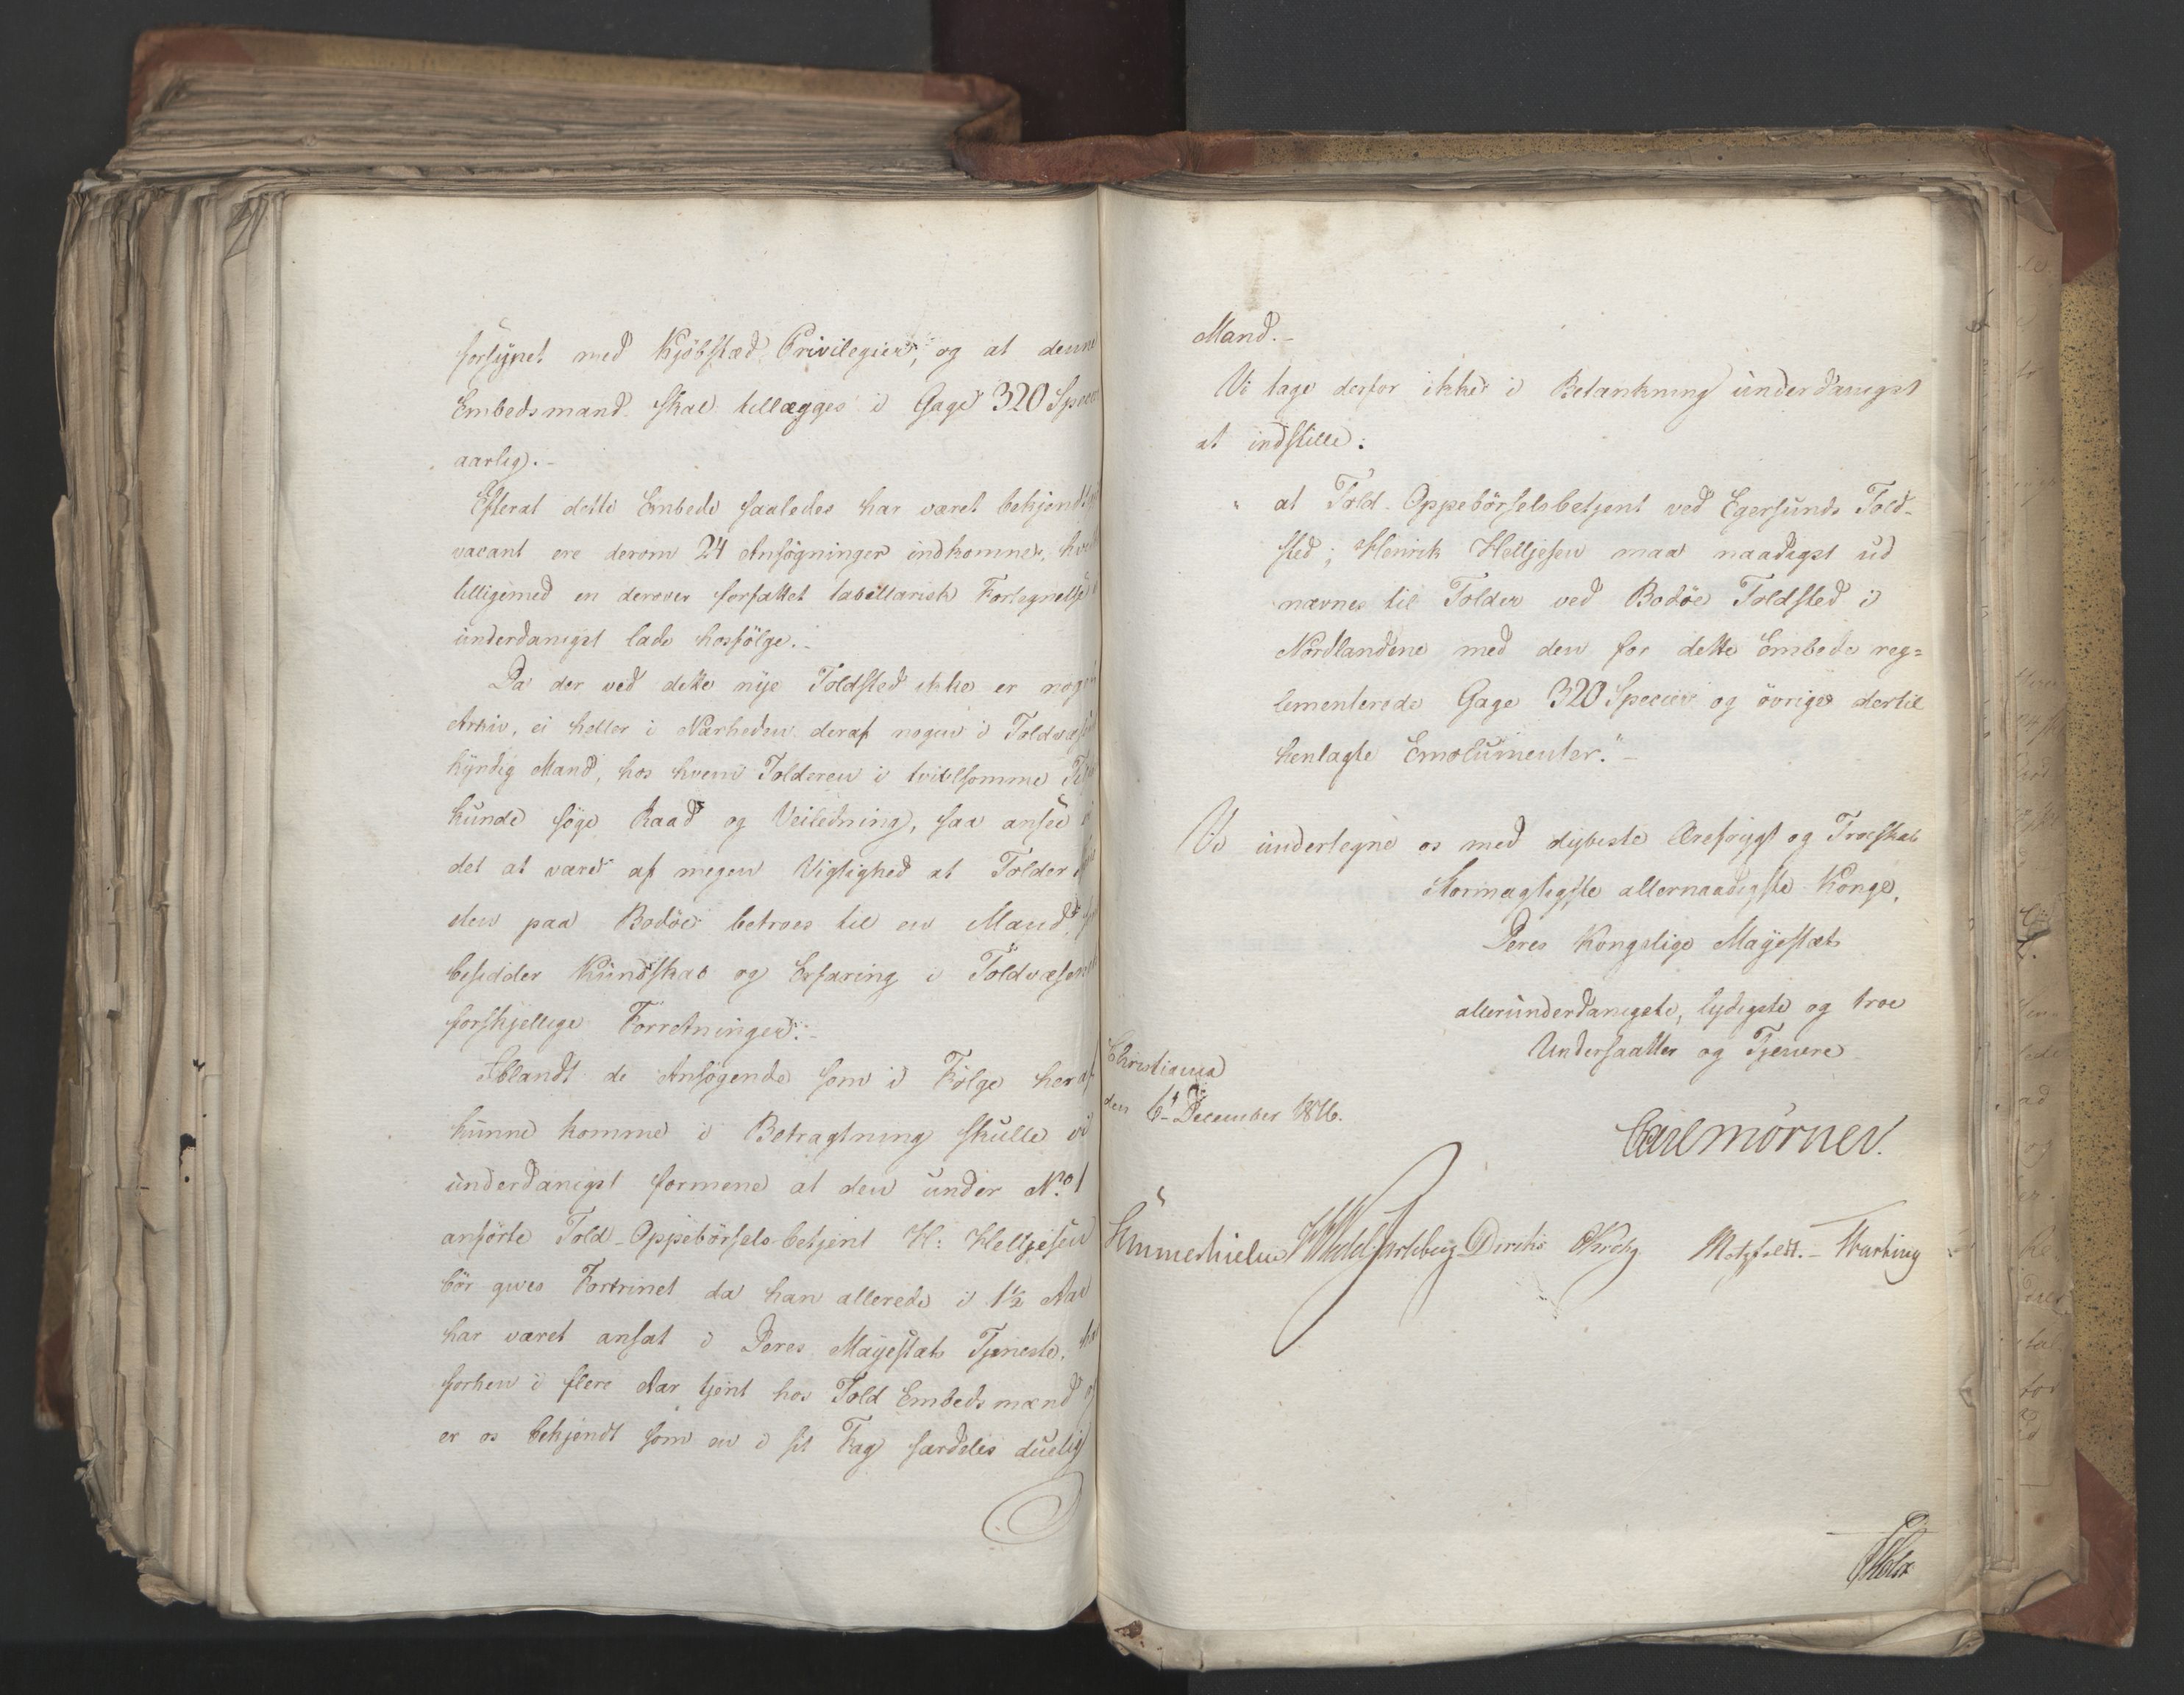 forsÿnet med Kjöbstæd Privilegier, og at denne
Embedsmand skal tillægges i Gage 320 Specier
aarlig.-
Efterat dette Embede saaledes har været bekjendt
vacant ere derom 24 Ansögninger indkomne,
tilligemed en derover forfattet tabellarisk Fortegnelse
underdanigst lade hosfölge.-
Da der ved dette nÿe Toldsted ikke er noget
Arkiv, ei heller i Nærheden deraf nogen i Toldvæsenet
kÿndig Mand, hos hvem Tolderen i tvivlsomme
kunde söge Raad og Veiledning, saa ansee vi
det at være af megen Vigtighed at Tolder
den paa Bodöe betroes til en Mand,
besidder Kundskab og Erfaring i Toldvæsenets
forskjellige Forretninger.-
Iblandt de Ansögende som i Fölge heraf
kunne komme i Betragtning skulle vi
underdanigst formene at den under No. 1
anförte Told-Oppebörsels-betjent H: Helljesen
bör gives Fortrinet da han allerede i 1½ Aar
har været ansat i Deres Mayestæts Tjeneste,
forhen i flere Aar tjent hos Told Embedsmænd og
er os bekjendt som en i sit Fag særdeles duelig
Mand.-
Vi tage derfor ikke i Betænkning underdanigst
at indstille:
" at Told-Oppebörselsbetjent ved Egersunds Told-
sted, Henrik Helljesen maa naadigst ud
nævnes til Tolder ved Bodöe Toldsted i
Nordlandene med den for dette Embede reg=
lementerede Gage 320 Specier og övrige dertil
henlagte Emolumenter."-
Vi undertegne os med dybeste Ærefrygt og Troeskab
Stormægtigste allernaadigste Konge,
Deres Kongelige Mayestæts
allerunderdanigste, lydigste og troe
Undersaatter og Tjenere
Christiania
den 6te December 1816.
Carl Mörner.
Sommerhielm HWedelJarlsberg Diriks Krohg Motzfeldt.-
Holst